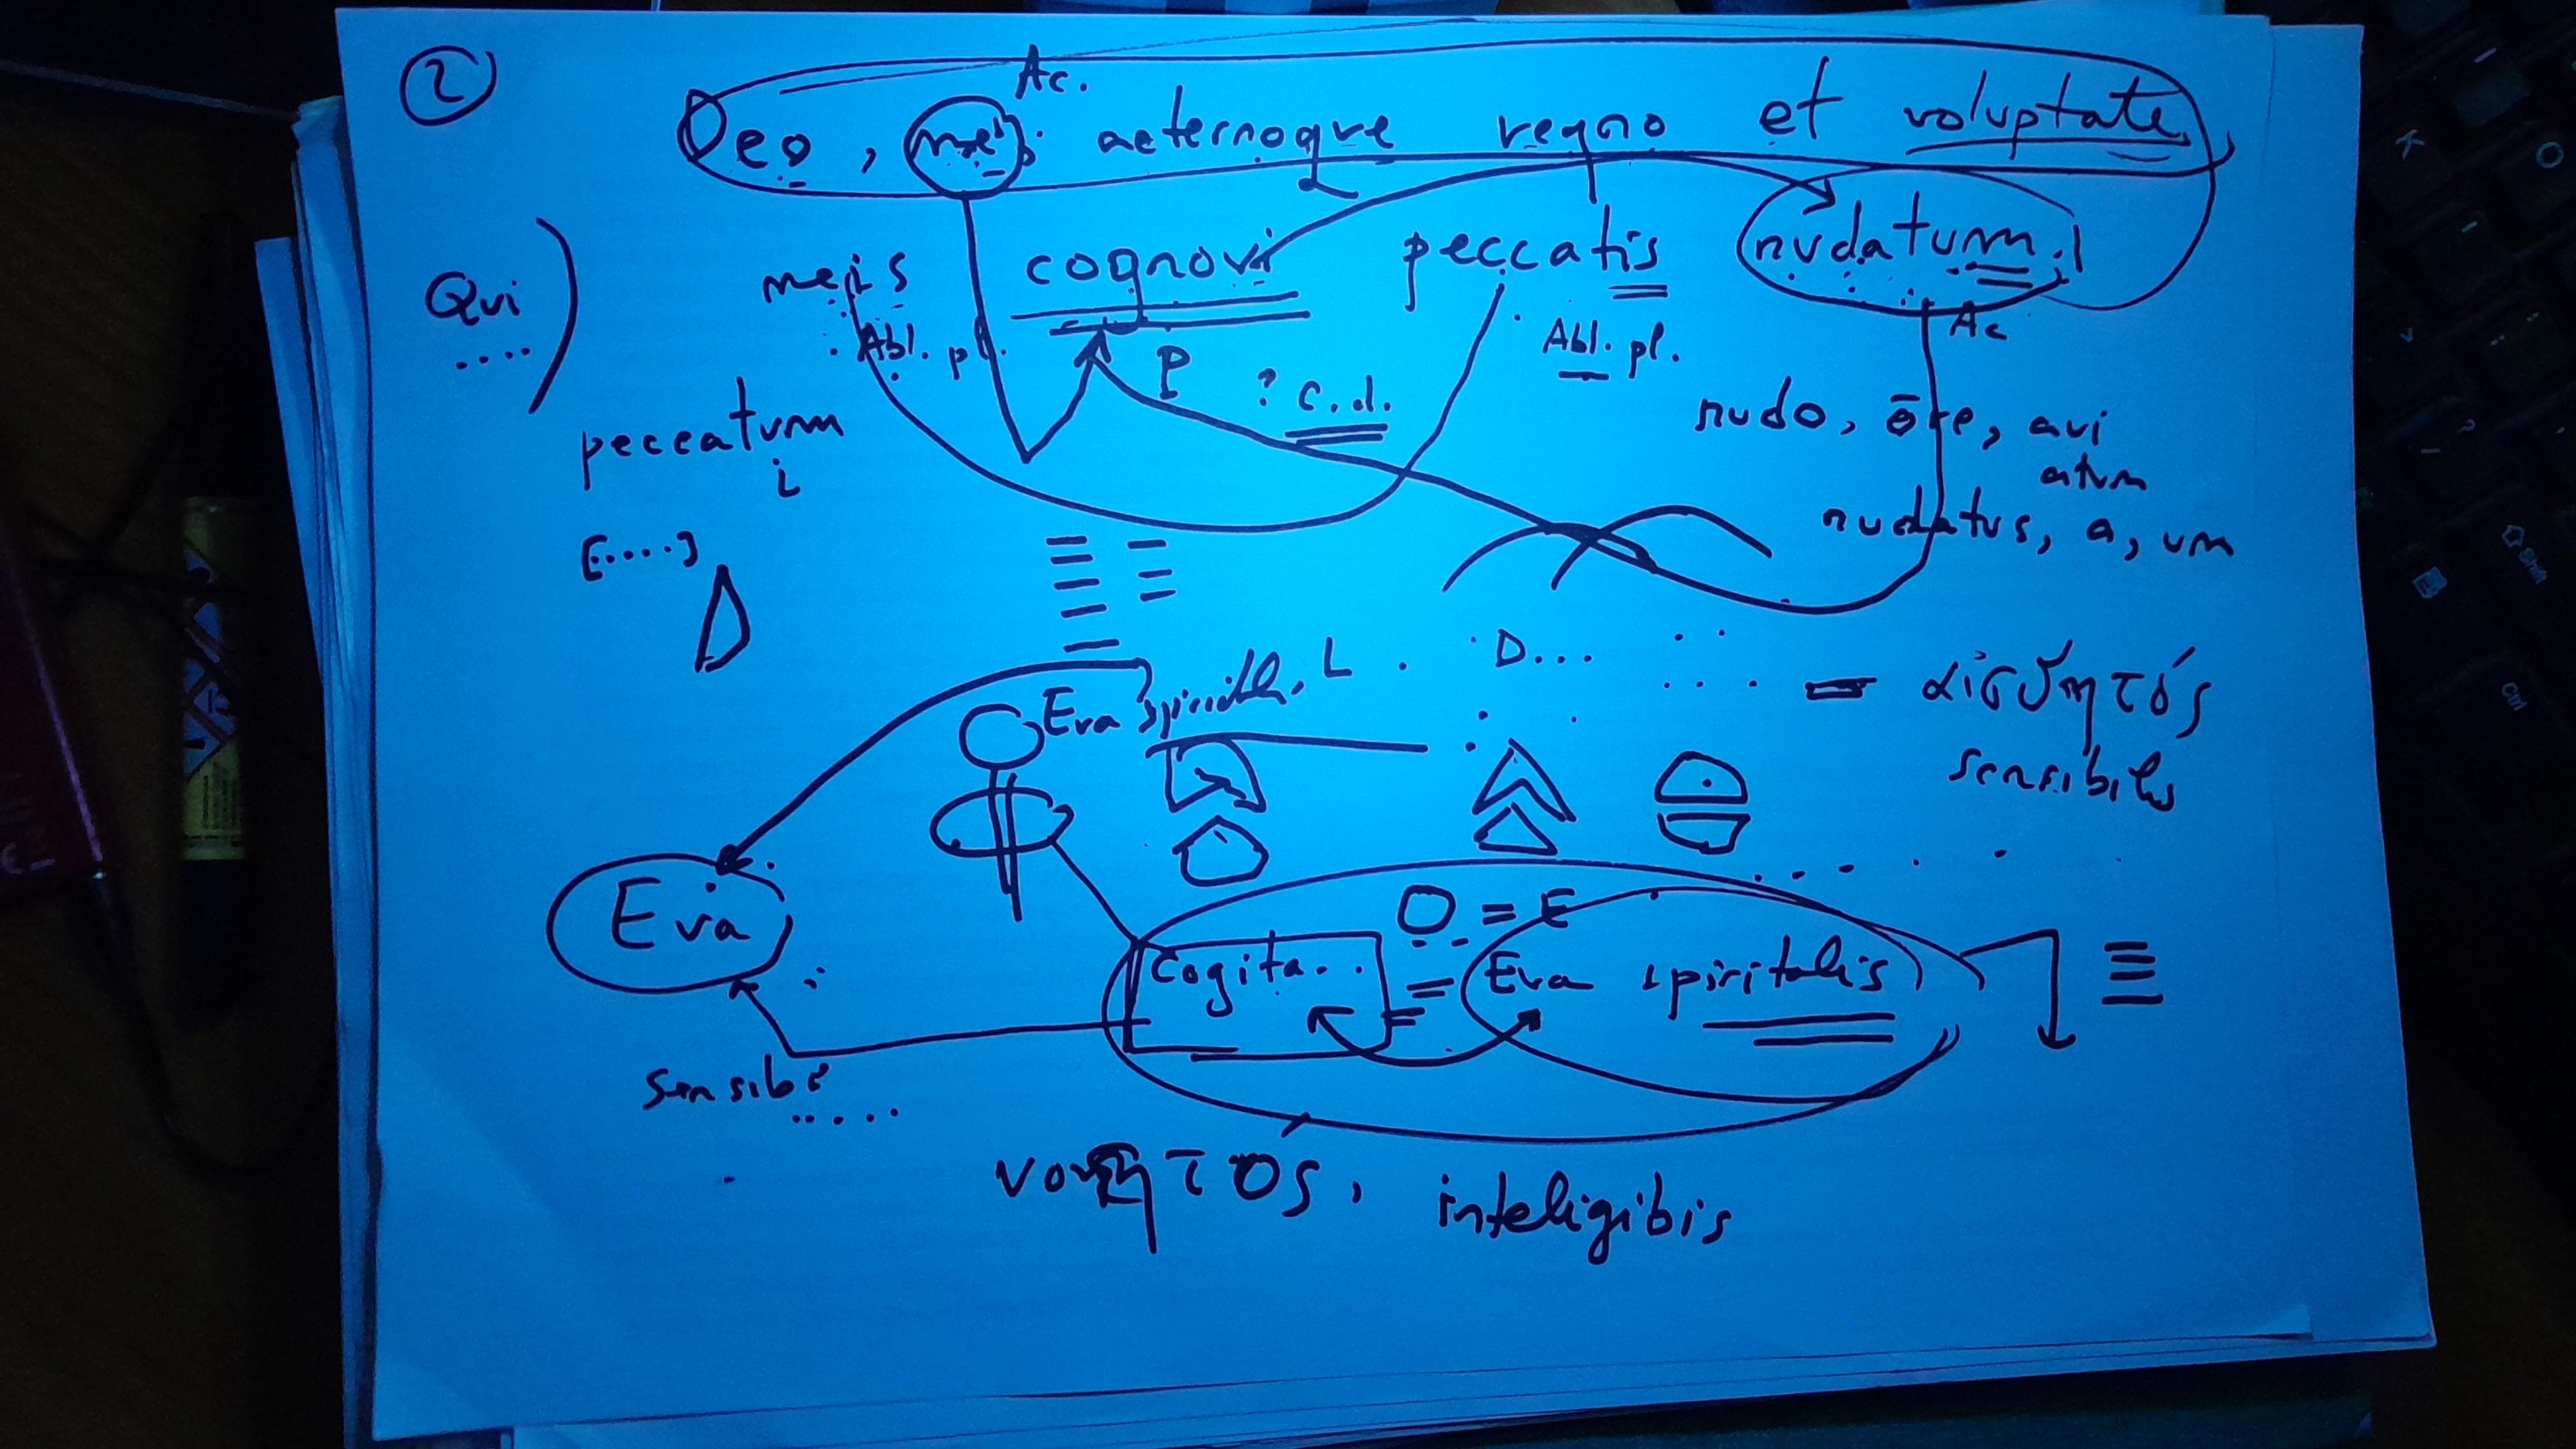 2
Ac.
Deo, me aeternoque regno et voluptate
Qui
meis cognovi peccatis nudatum
Abl. pl. P ? c.d. Abl. pl. Ac
peccatum
i
nudo, āre, avi
atum
nudatus, a, um
[....]
Eva L . D...
= αἰσθητός
sensibilis
Eva
O = E
Cogita.. = Eva spiritalis
sensibi
νοητός, inteligibis